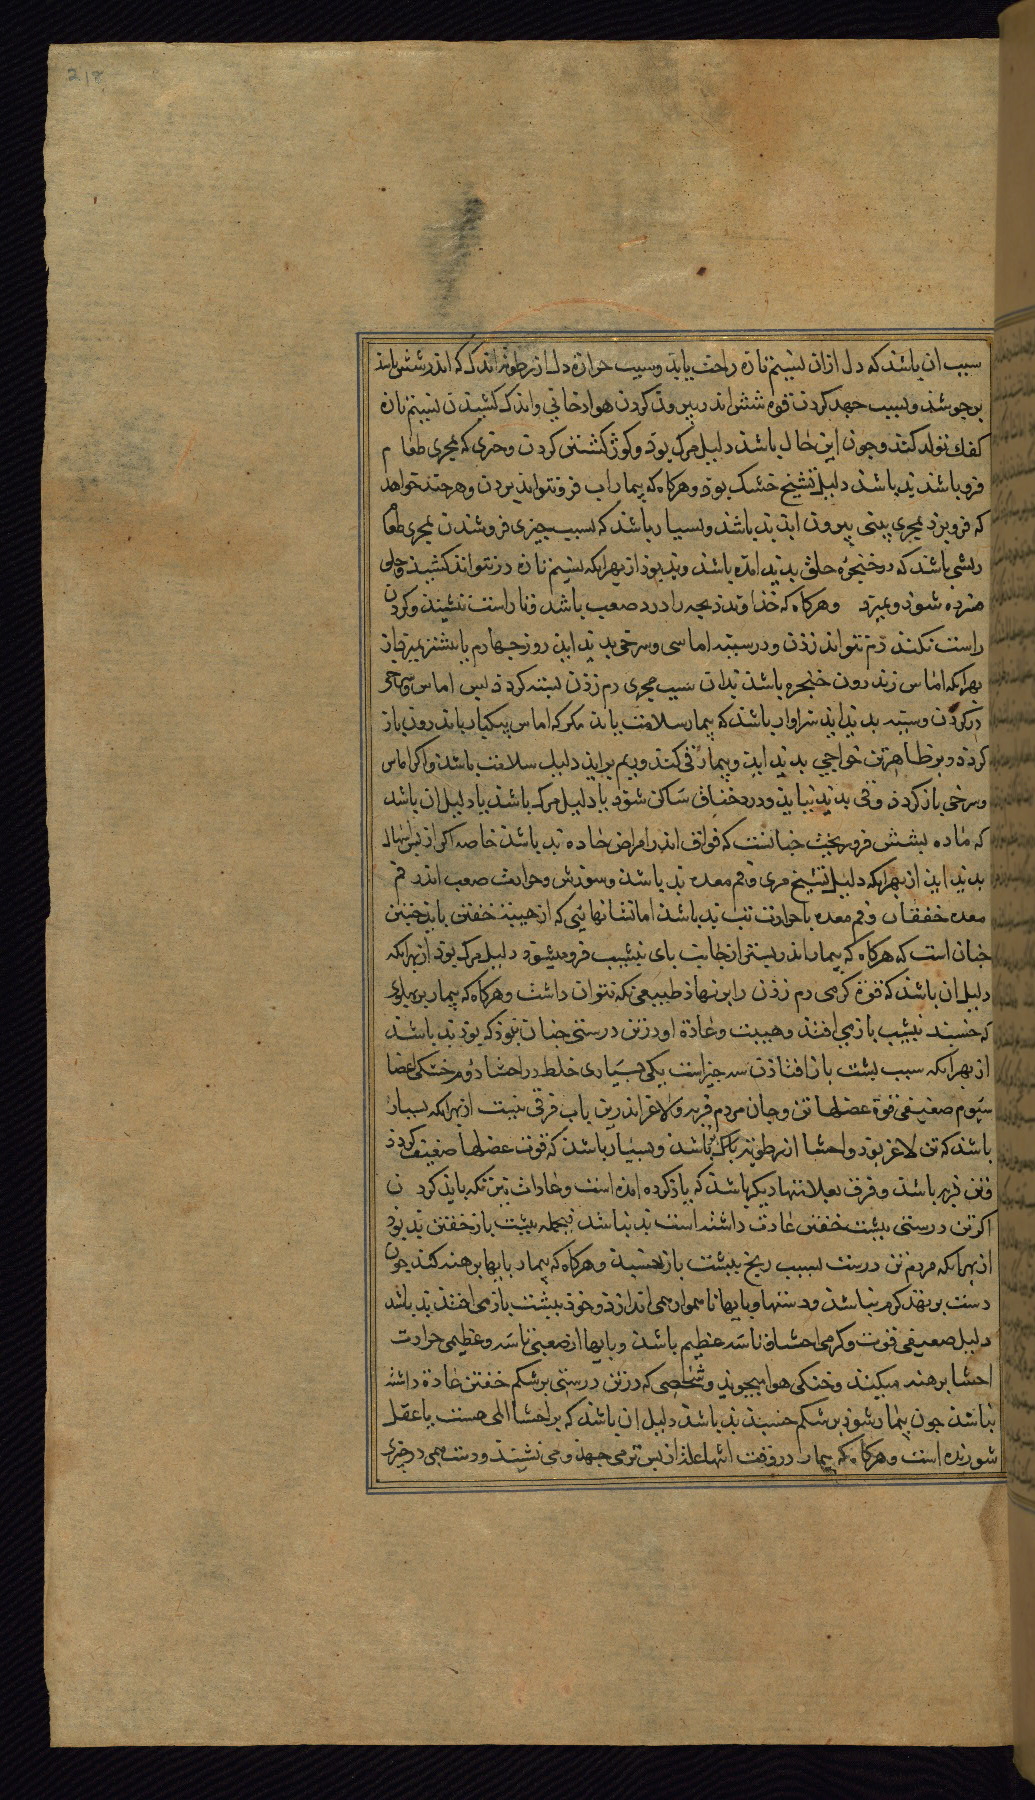 218
سبب ان باشذ که دل از ان نسیم تازه راحت یابذ وسبب حرارة دل از رطوبتی اندک که اندر شش باشذ
برجوشذ وبسبب جهد کردن قوة شش اندر بیرون کردن هواء دخانی واندک کشیدن نسیم تازه
کفک تولد کند وجون این حال باشذ دلیل مرک بوذ وکوژ کشتن کردن وحزی که بمجری طعام
فرو باشذ بذ باشذ دلیل تشنج خشک بوذ وهرکاه که بیمار اب فرو نتواند بردن وهرجند خواهد
که فرو برذ بمجری بینی بیرون ایذ بذ باشذ وبسیار باشذ که بسبب جیزی فرو شدن بمجری طعام
ریشی باشذ که در حنجره حلق بدید امده باشذ وبذ بوذ از بهر انکه نسیم تازه در نتواند کشیذ وخلی
مرده شوذ وبمیرذ وهرکاه که خداوند ذبحه را درد صعب باشد وتا راست ننشیند وکردن
راست نکند دم نتواند زدن ودر سینه اماسی وسرخی بدید ایذ روز جهارم یا بیشتر بمیرذ از
بهر انکه اماس اندرون حنجره باشذ بدان سبب مجری دم زدن بسته کردذ بس اماس
در کردن وسینه بدید ایذ سزاوار باشذ که بیمار سلامت یابد مکر که اماس بیکبار باندرون باز
کردد وبر ظاهر تن خراجی بدید ایذ وبیمار قی کند وریم برایذ دلیل سلامت باشذ واکر اماس
وسرخی باز کردذ وقی بدید نیایذ ودرد خناق ساکن شوذ یا دلیل مرک باشذ یا دلیل ان باشد
که ماده بشش فرو ریخت جنانست که فواق اندر امراض حاده بذ باشذ خاصه اکر از بس اسهال
بدید ایذ از بهر انکه دلیل تشنج مری وفم معده بذ باشذ وسوزش وحرارت صعب اندر فم
معده خفقان وفم معده با حرارت تب بذ باشذ اما نشانهائی که از هیئت خفتن باید جستن
جنان است که هرکاه که بیمار اندر بستر از جانب بای بنشیب فرو میشوذ دلیل مرک بوذ از بهر انکه
دلیل ان باشذ که قوة کرمی دم زدن را بر نهاذ طبیعی نکه نتوان داشت وهرکاه که بیمار بر بهلوی
که خسبد بنشیب باز می افتد وهیئت وعاذة او در تن درستی جنان نبوذ که بوذ بذ باشذ
از بهر انکه سبب بشت باز افتاذن سه جیز است یکی بسیاری خلط در احشا دوم خشکی اعضا
سیوم ضعیفی قوة عضلهاء تن وجان مردم فربه ولاغر اندر این باب فرقی نیست از بهر انکه بسیار
باشذ که تن لاغر بوذ واحشا از رطوبتی باک نباشذ وبسیار باشذ که قوت عضلها ضعیف کردذ
وتن فربه باشذ وفرق بعلامتهاء دیکر باشذ که یاذ کرده امده است وعاداث نیز نکه بایذ کردن
اکر تن درستی ببشت خفتن عادت داشته است بذ نباشد فی‌الجمله ببشت باز خفتن بذ بوذ
از بهر انکه مردم تن درست بسبب رنج ببشت باز خسبذ وهرکاه که بیمار بایها برهنه کند جون
دست بر نهند کرم نباشذ ودستها وبایها ناهموار همی اندازذ وخوذ ببشت باز می افتد بذ باشد
دلیل ضعیفی قوت وکرمی احشا وتاسه عظیم باشذ وبایها از ضعیفی تاسه وعظیمی حرارت
احشا برهنه میکند وخنکی هوا میجوید وشخصی که در تن درستی بر شکم خفتن عاذة داشته
نباشذ جون بیمار شوذ بر شکم خسبذ بذ باشذ دلیل ان باشذ که بر احشا المی هست یا عقل
شوریده است وهرکاه که بیمار در وقت انتهاء علة از بستر می جهذ ومی نشیند ودست همی در جیزی